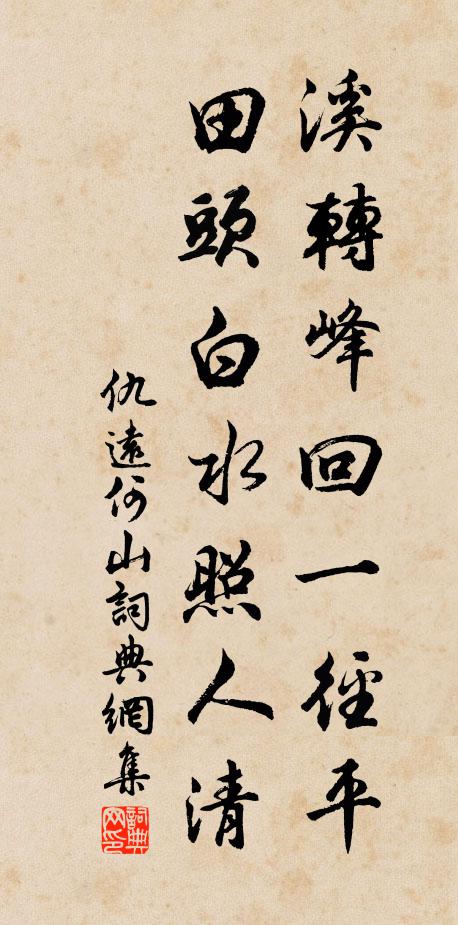 溪轉峰回一徑平
田頭白水照人清
仇遠何山詞典網集
詞典網印